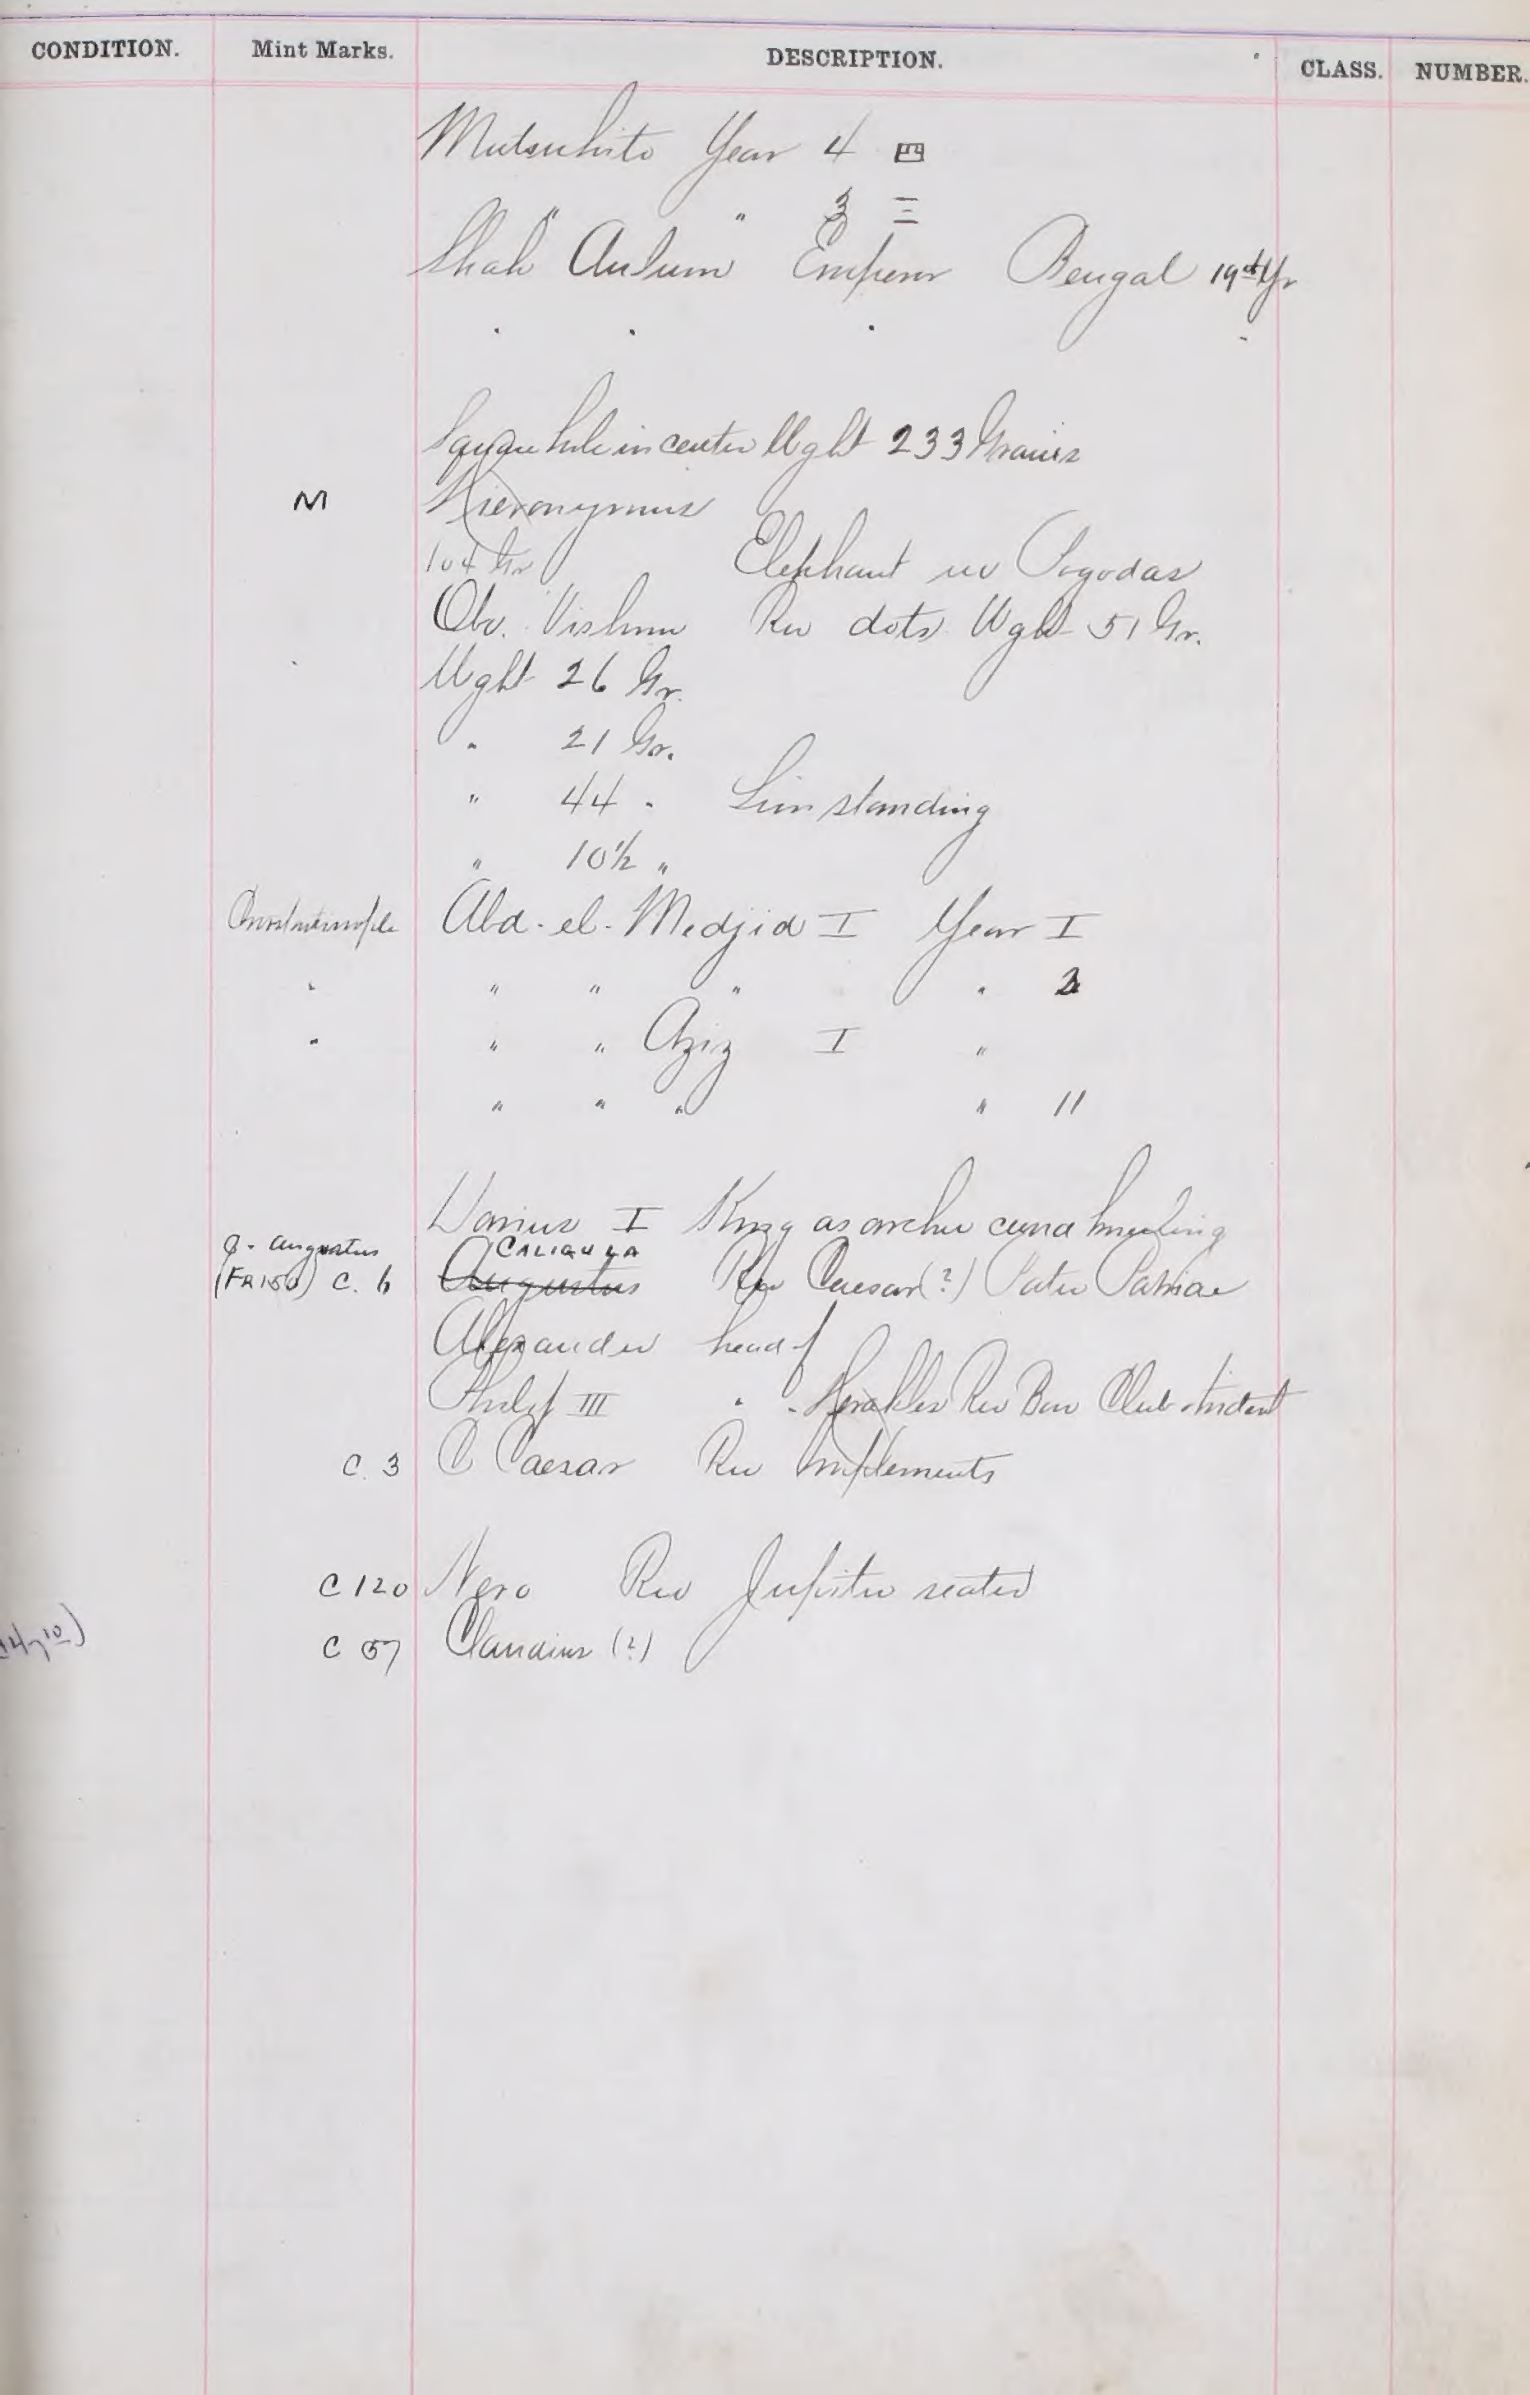 CONDITION. Mint Marks. DESCRIPTION. CLASS. NUMBER.
Mutsuhito Year 4 四
" " 3 三
Shah Aulum Emperor Bengal 19th Yr
" " " "
Square hole in center Wght 233 Grains
M Hieronymus
104 Gr Elephant rev Pagodas
Obv. Vishnu Rev dots Wght 51 Gr.
Wght 26 Gr.
" 21 Gr.
" 44 " Lion standing
" 10½ "
Constantinople Abd-el-Medjid I Year I
" " " " " 2
" " " Aziz I "
" " " " 11
Darius I King as archer kneeling
Augustus CALIGULA
(FR150) C. 6 Augustus Rev Caesar (?) Pater Patriae
Alexander head of
Philip III " " Herakles Rev Bow Club trident
C. 3 C Caesar Rev Implements
C 120 Nero Rev Jupiter seated
C 57 Claudius (?)